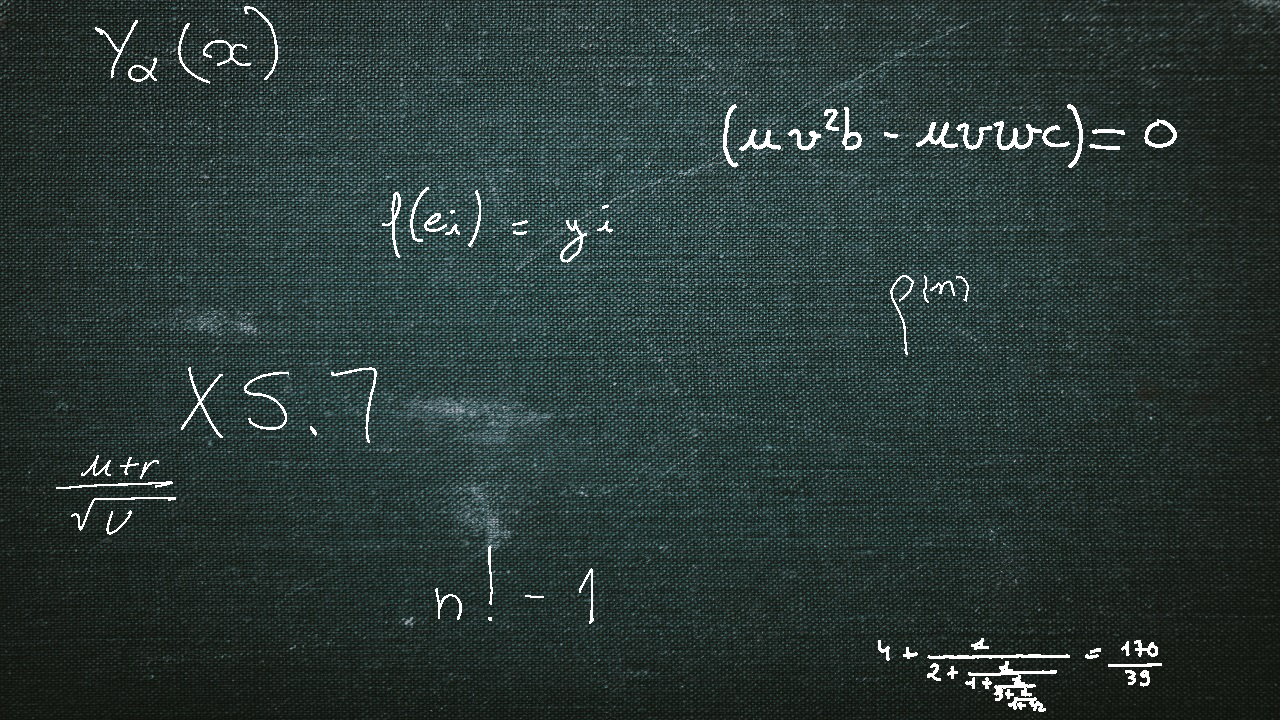 Y_α(x)
(μv²b - μvwc) = 0
f(e_i) = y i
ρ^(n)
X5.7
(μ+r)/√v
n! - 1
4 + 1/(2 + 1/(1 + 1/(3 + 1/(1 + 1/2)))) = 170/39